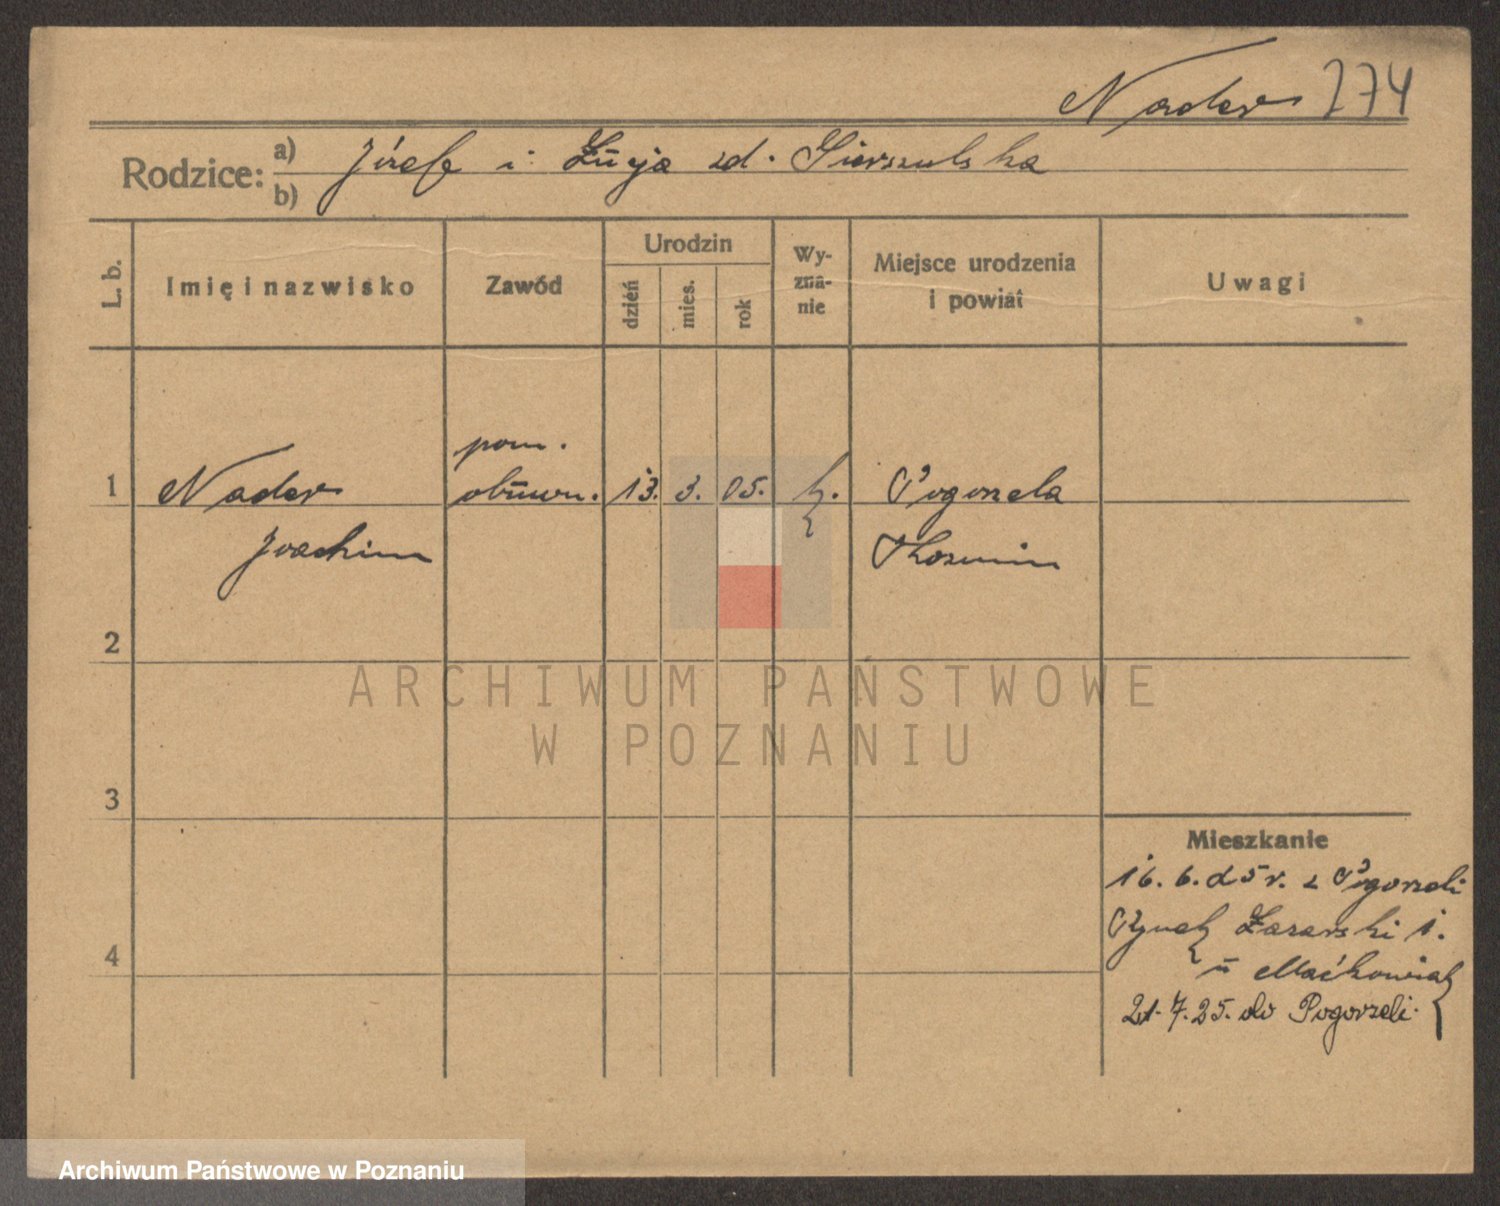 Nader 274
Rodzice: a) b) Józef i Łucja zd. Sierszulska
L. b.
Imię i nazwisko
Zawód
Urodzin
dzień
mies.
rok
Wy-
zna-
nie
Miejsce urodzenia
i powiat
Uwagi
pom.
1 Nader obuwn. 13. 3. 05. k. Pogorzela
Joachim Kozmin
2
ARCHIWUM PAŃSTWOWE
W POZNANIU
3
Mieszkanie
16. 6. 25 r. z Pogorzeli
Rynek Łazarski 1.
4
u Maćkowiak
21. 7. 25. do Pogorzeli.
Archiwum Państwowe w Poznaniu